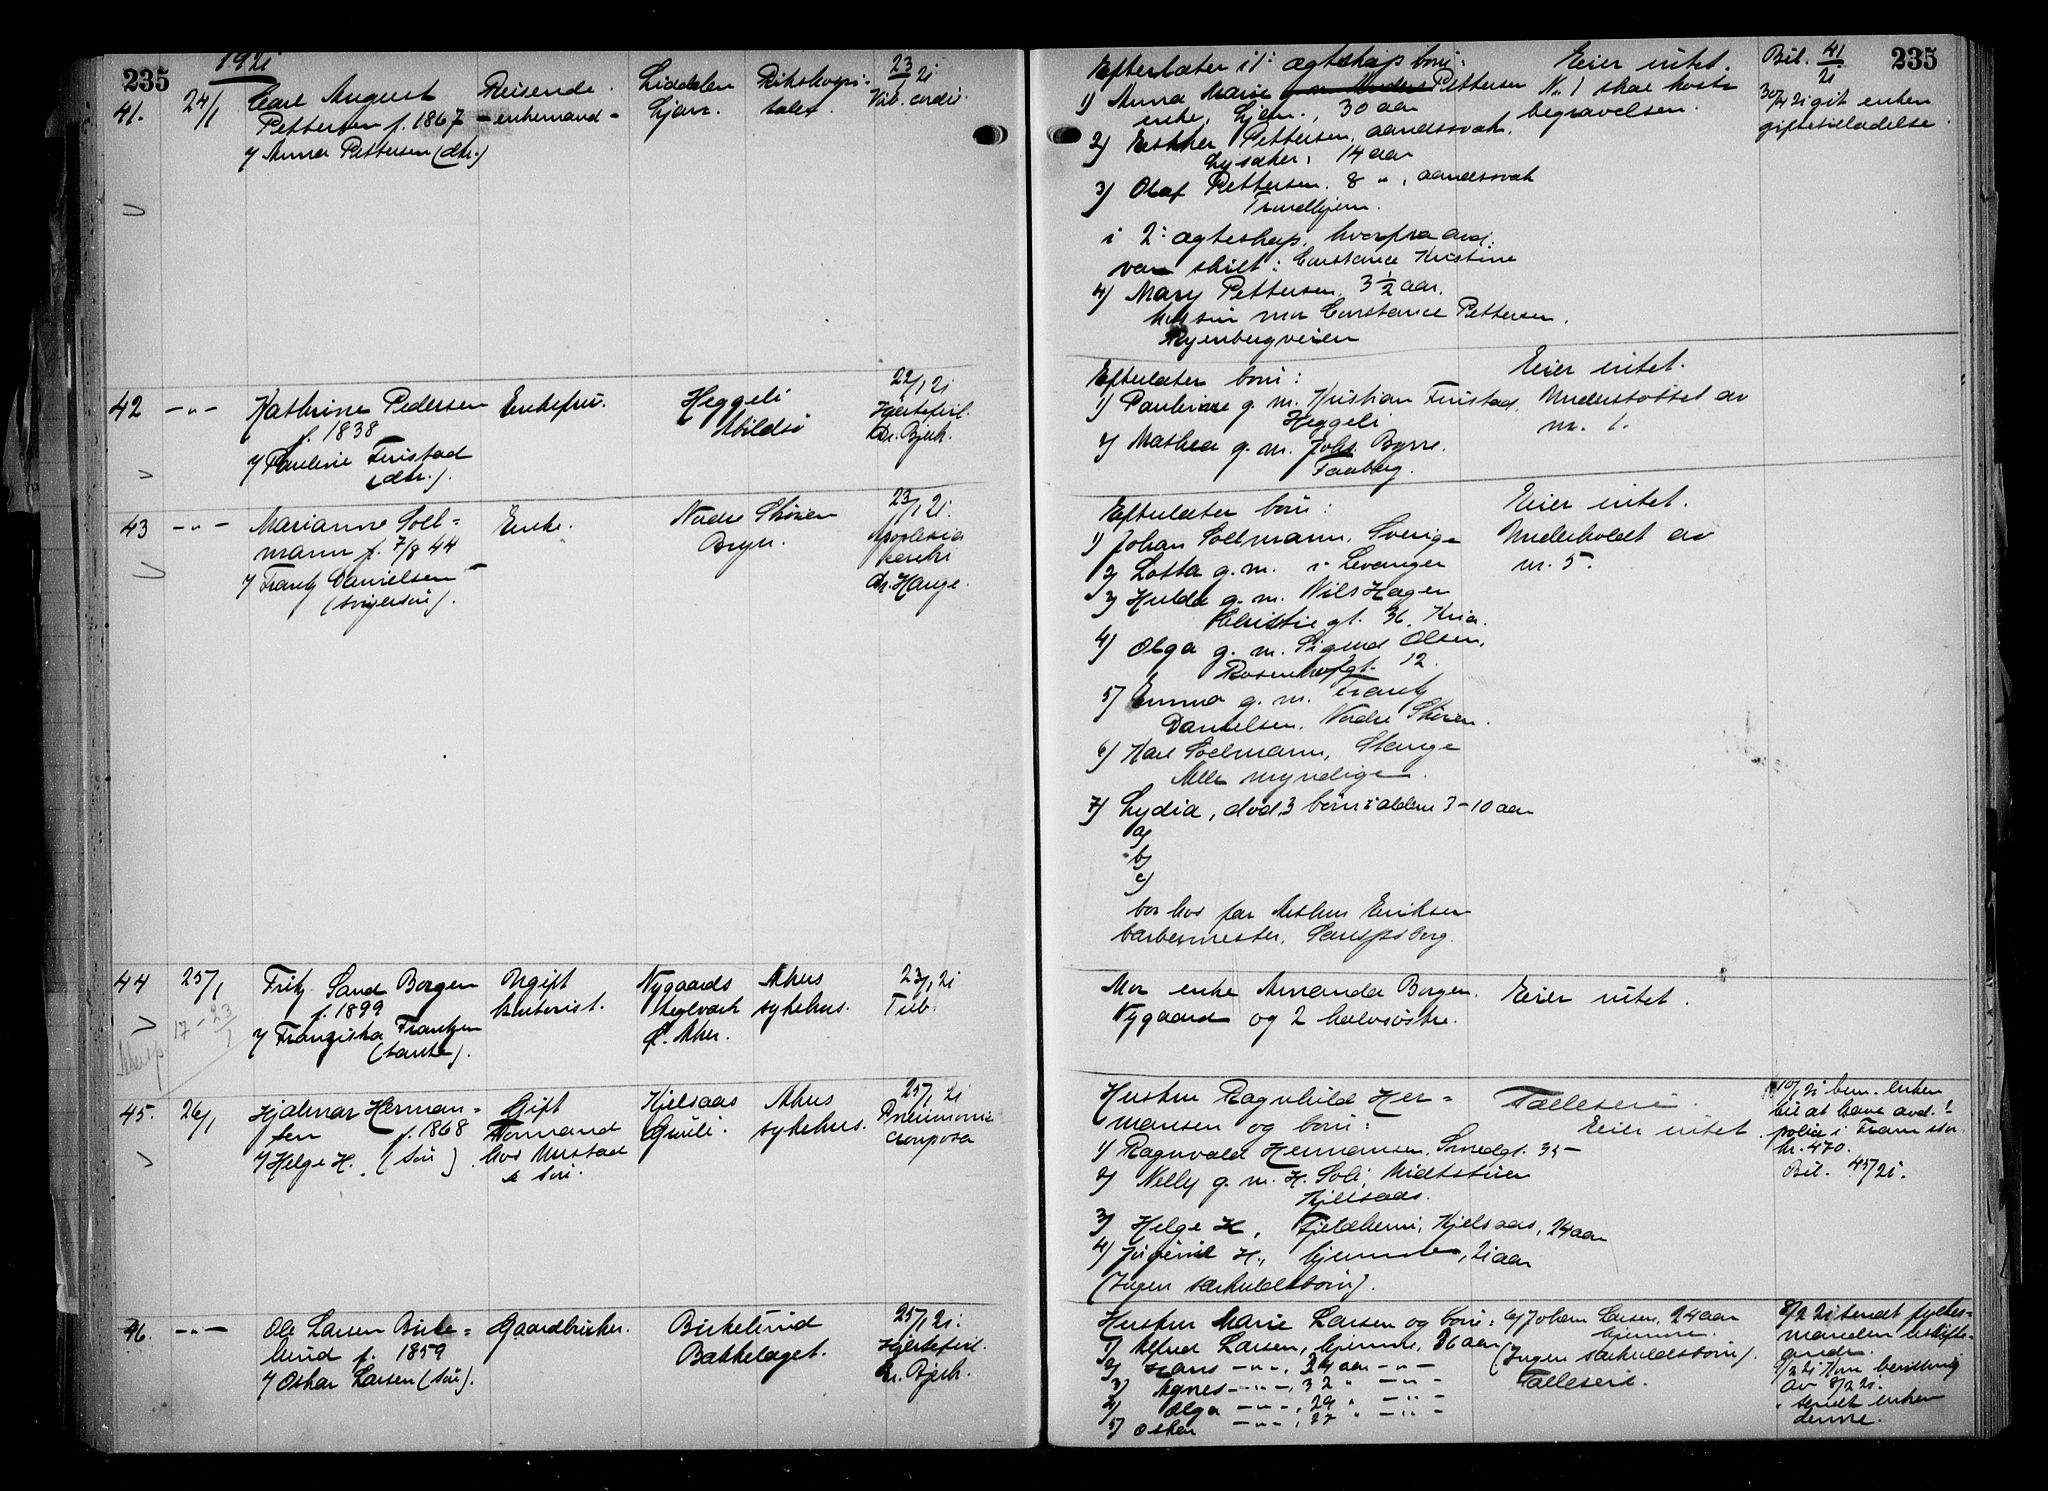 235
1921
41.
24/1
Carl August
Pettersen f. 1867
v/ Anna Pettersen (dtr.)
Reisende.
- enkemand -
Liddelen
Ljan.
Rikshospi-
talet
23/1 21
Vit. cordis.
Efterlater i 1º ægteskap børn:
1) Anna Marie Pettersen
enke, Ljan., 30 aar
2) Esther Pettersen, aandssvak,
Lysaker, 14 aar
3) Olaf Pettersen. 8 " , aandssvak
Trondhjem.
i 2º ægteskap, hvorfra avd.
var skilt: Constance Kristine
4) Mary Pettersen, 3 1/2 aar.
hos sin mor Constance Pettersen.
Ryenbergveien
Eier intet.
Nr. 1 skal koste
begravelsen.
Bil. 41/21
30/4 21 git enken
giftetilladelse
235
42
-"-
Kathrine Pedersen
f. 1838
v/ Pauline Finstad
(dtr.).
Enkefru.
Heggeli
Abildsø
22/1 21
Hjertefeil.
Dr. Bjerk.
Efterlater børn:
1) Pauline g. m. Kristian Finstad,
Heggeli
2) Mathea g. m. Johs. Byrre.
Faaberg.
Eier intet.
Understøttet av
nr. 1.
43
-"-
Marianne Soll-
mann f. 7/8 44
v/ Frantz Danielsen
(svigersøn).
Enke.
Nordre Skøien
Bryn.
23/1 21.
Apoplexia
cerebri
Dr. Hauge.
Efterlater børn:
1) Johan Sollmann, Sverige
2) Lotta g. m. i Levanger
3) Hulda g. m. Nils Hager
Christiegt. 36, Kria.
4) Olga g. m. Sigurd Olsen,
Rosenhofgt. 12.
5) Emma g. m. Frantz
Danielsen, Nordre Skøien.
6) Karl Sollmann, Stange
Alle myndige.
7) Lydia, død, 3 børn i alderen 3-10 aar
a)
b)
c)
bor hos far Arthur Eriksen
barbermester, Sarpsborg.
Eier intet.
Underholdt av
nr. 5.
44
25/1
17 - 23/1
Fritz Sand Borgen
f. 1899
v/ Franziska Frantzen
(tante).
Ugift
kontorist.
Nygaards
teglverk
Ø. Aker.
Akers
sykehus.
23/1 21
Tub.
Mor enke Amanda Borgen.
Nygaard og 2 halvsøstre.
Eier intet.
45.
26/1
Hjalmar Herman-
sen f. 1868
v/ Helge H. (søn)
Gift
Formand
hos Mustad
& Søn.
Kjelsaas
Grinli.
Akers
sykehus.
25/1 21
Pneumonia
crouposa
Hustru Ragnhild Her-
mansen og børn:
1) Ragnvald Hermansen, Smedgt. 35 -
2) Nelly g. m. H. Soli, Midtstuen
Kjelsaas.
3) Helge H, Fjeldheim, Kjelsaas, 24 aar
4) H., hjemme, 21 aar
(Ingen særkuldsbørn).
Fælleseie.
Eier intet
10/1 21 bem. enken
til at hæve avd.s
police i Fram stor
kr. 470.
Bil. 45/21.
46.
-"-
Ole Larsen Birke-
lund f. 1859
v/ Oskar Larsen (søn).
Gaardbruker.
Birkelund
Bakkelaget.
25/1 21.
Hjertefeil.
Dr. Bjerk.
Hustru Marie Larsen og børn:
1) Alfred Larsen, hjemme, 36 aar
2) Hans -"-, 34 aar -"-
3) Agnes -"-, 32 " -"-
4) Olga -"-, 29 " -"-
5) Oskar -"-, 27 " -"-
6) Johan Larsen, 24 aar
hjemme.
(Ingen særkuldsbørn).
Fælleseie.
8/2 21 sendt fylkes-
manden
9/2 21 bevilling
av 8/2 21.
" sendt enken
denne.